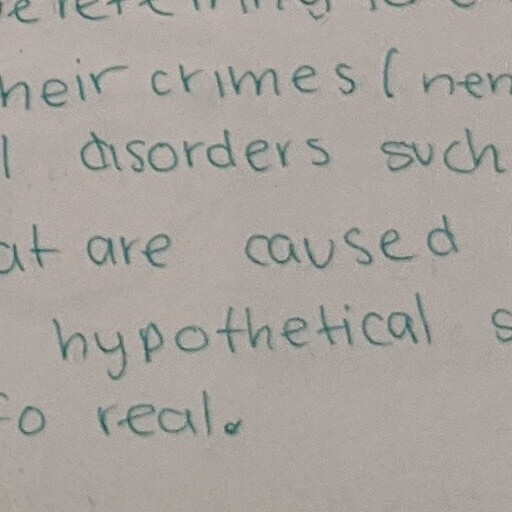 heir crimes (nen
l disorders such
at are caused
hypothetical s
fo real.